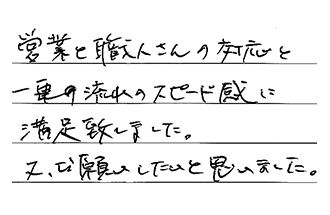 営業と職人さんの対応と
一連の流れのスピード感に
満足致しました。
又、お願いしたいと思いました。